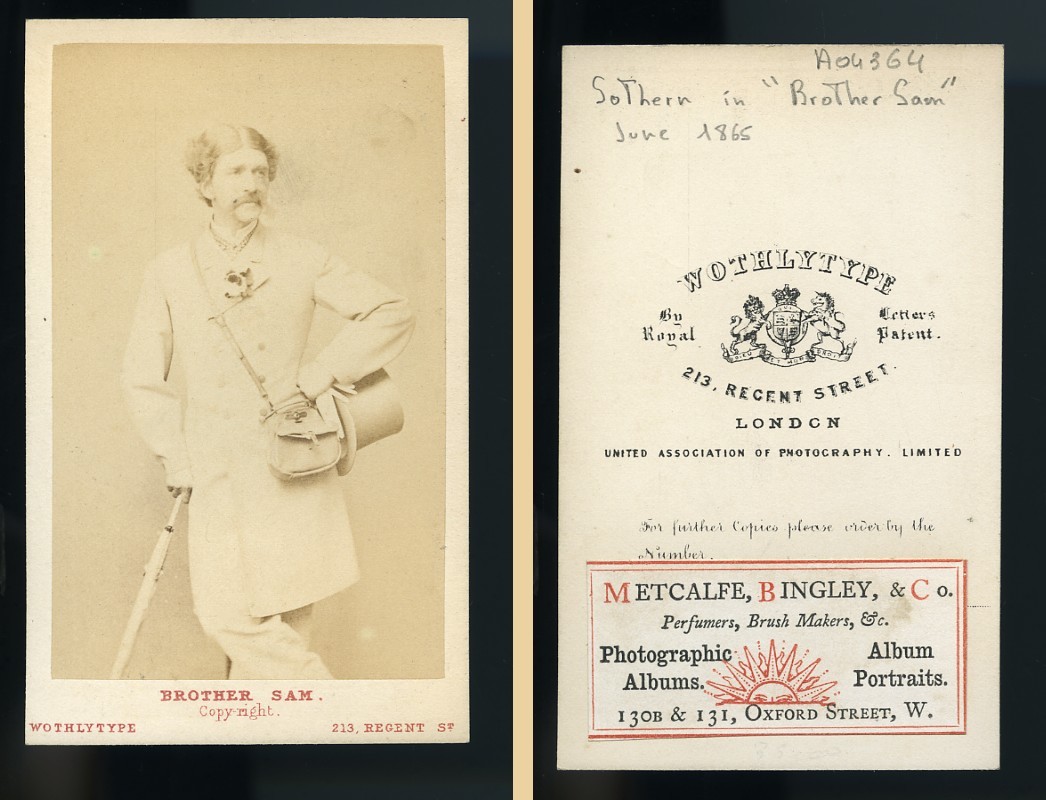 BROTHER SAM.
Copyright.
WOTHLYTYPE 213, REGENT ST
A04364
Sothern in "Brother Sam"
June 1865
WOTHLYTYPE
By Royal Letters Patent.
213, REGENT STREET.
LONDON
UNITED ASSOCIATION OF PHOTOGRAPHY. LIMITED
For further Copies please order by the
Number.
METCALFE, BINGLEY, & Co.
Perfumers, Brush Makers, &c.
Photographic Albums.
Album Portraits.
130B & 131, OXFORD STREET, W.